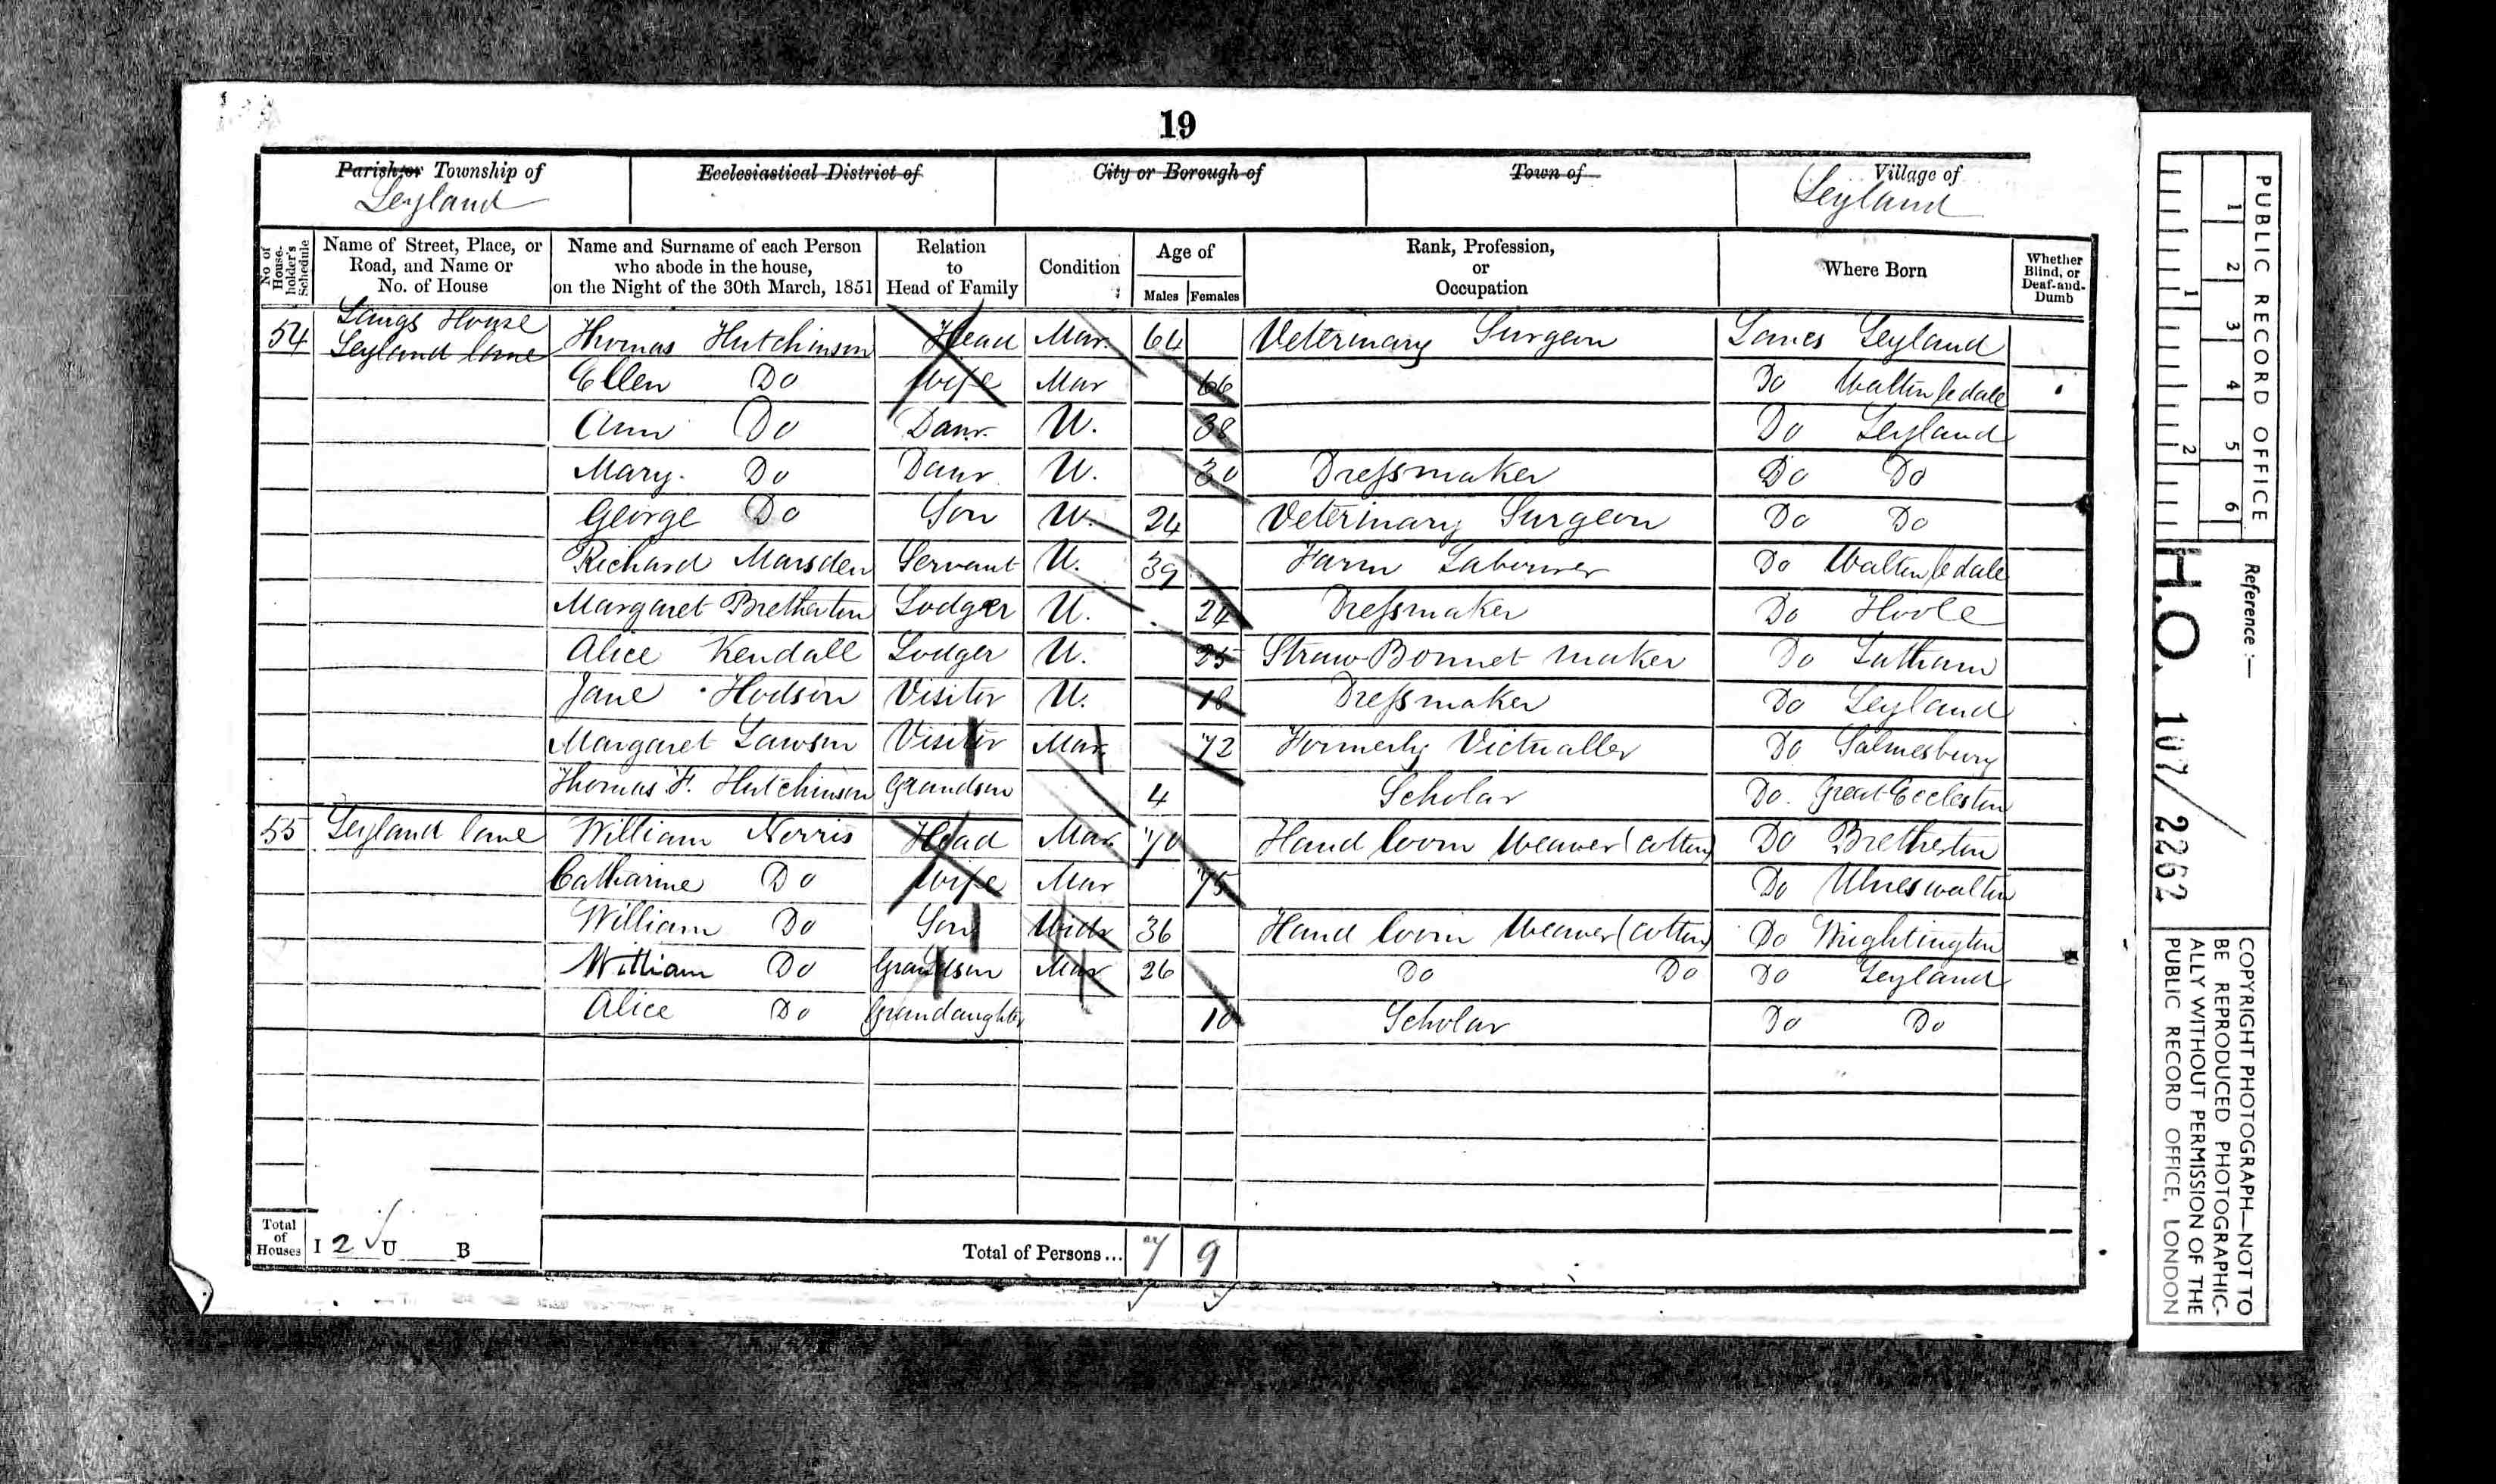 19
Parish or Township of Ecclesiastical District of City or Borough of Town of Village of
Leyland Leyland
No. of Householder's Schedule
Name of Street, Place, or Road, and Name or No. of House
Name and Surname of each Person who abode in the house, on the Night of the 30th March, 1851
Relation to Head of Family
Condition
Age of
Males Females
Rank, Profession, or Occupation
Where Born
Whether Blind, or Deaf-and-Dumb
54 House Leyland lane Thomas Hutchinson Head Mar. 64 Veterinary Surgeon Lancs Leyland
Ellen Do Wife Mar 66 Do Walton le dale
Ann Do Daur. U. 38 Do Leyland
Mary. Do Daur U. 30 Dressmaker Do Do
George Do Son U. 24 Veterinary Surgeon Do Do
Richard Marsden Servant U. 39 Farm Labourer Do Walton le dale
Margaret Bretherton Lodger U. 24 Dressmaker Do Hoole
Alice Kendall Lodger U. 25 Straw Bonnet maker Do Latham
Jane Hodson Visitor U. 18 Dressmaker Do Leyland
Margaret Lawson Visitor Mar 72 Formerly Victualler Do Salmesbury
Thomas F. Hutchinson Grandson 4 Scholar Do. Great Eccleston
55 Leyland lane William Norris Head Mar. 70 Hand loom Weaver (Cotton) Do Bretherton
Catharine Do Wife Mar 75 Do Ulneswalton
William Do Son Widr 36 Hand loom Weaver (Cotton) Do Wrightington
William Do Grandson Mar 26 Do Do Do Leyland
Alice Do Grandaughter 10 Scholar Do Do
Total of Houses I 2 U B Total of Persons... 7 9
PUBLIC RECORD OFFICE
1 2 3 4 5 6
1 2
Reference:—
H.O. 107/2262
COPYRIGHT PHOTOGRAPH—NOT TO
BE REPRODUCED PHOTOGRAPHIC-
ALLY WITHOUT PERMISSION OF THE
PUBLIC RECORD OFFICE, LONDON